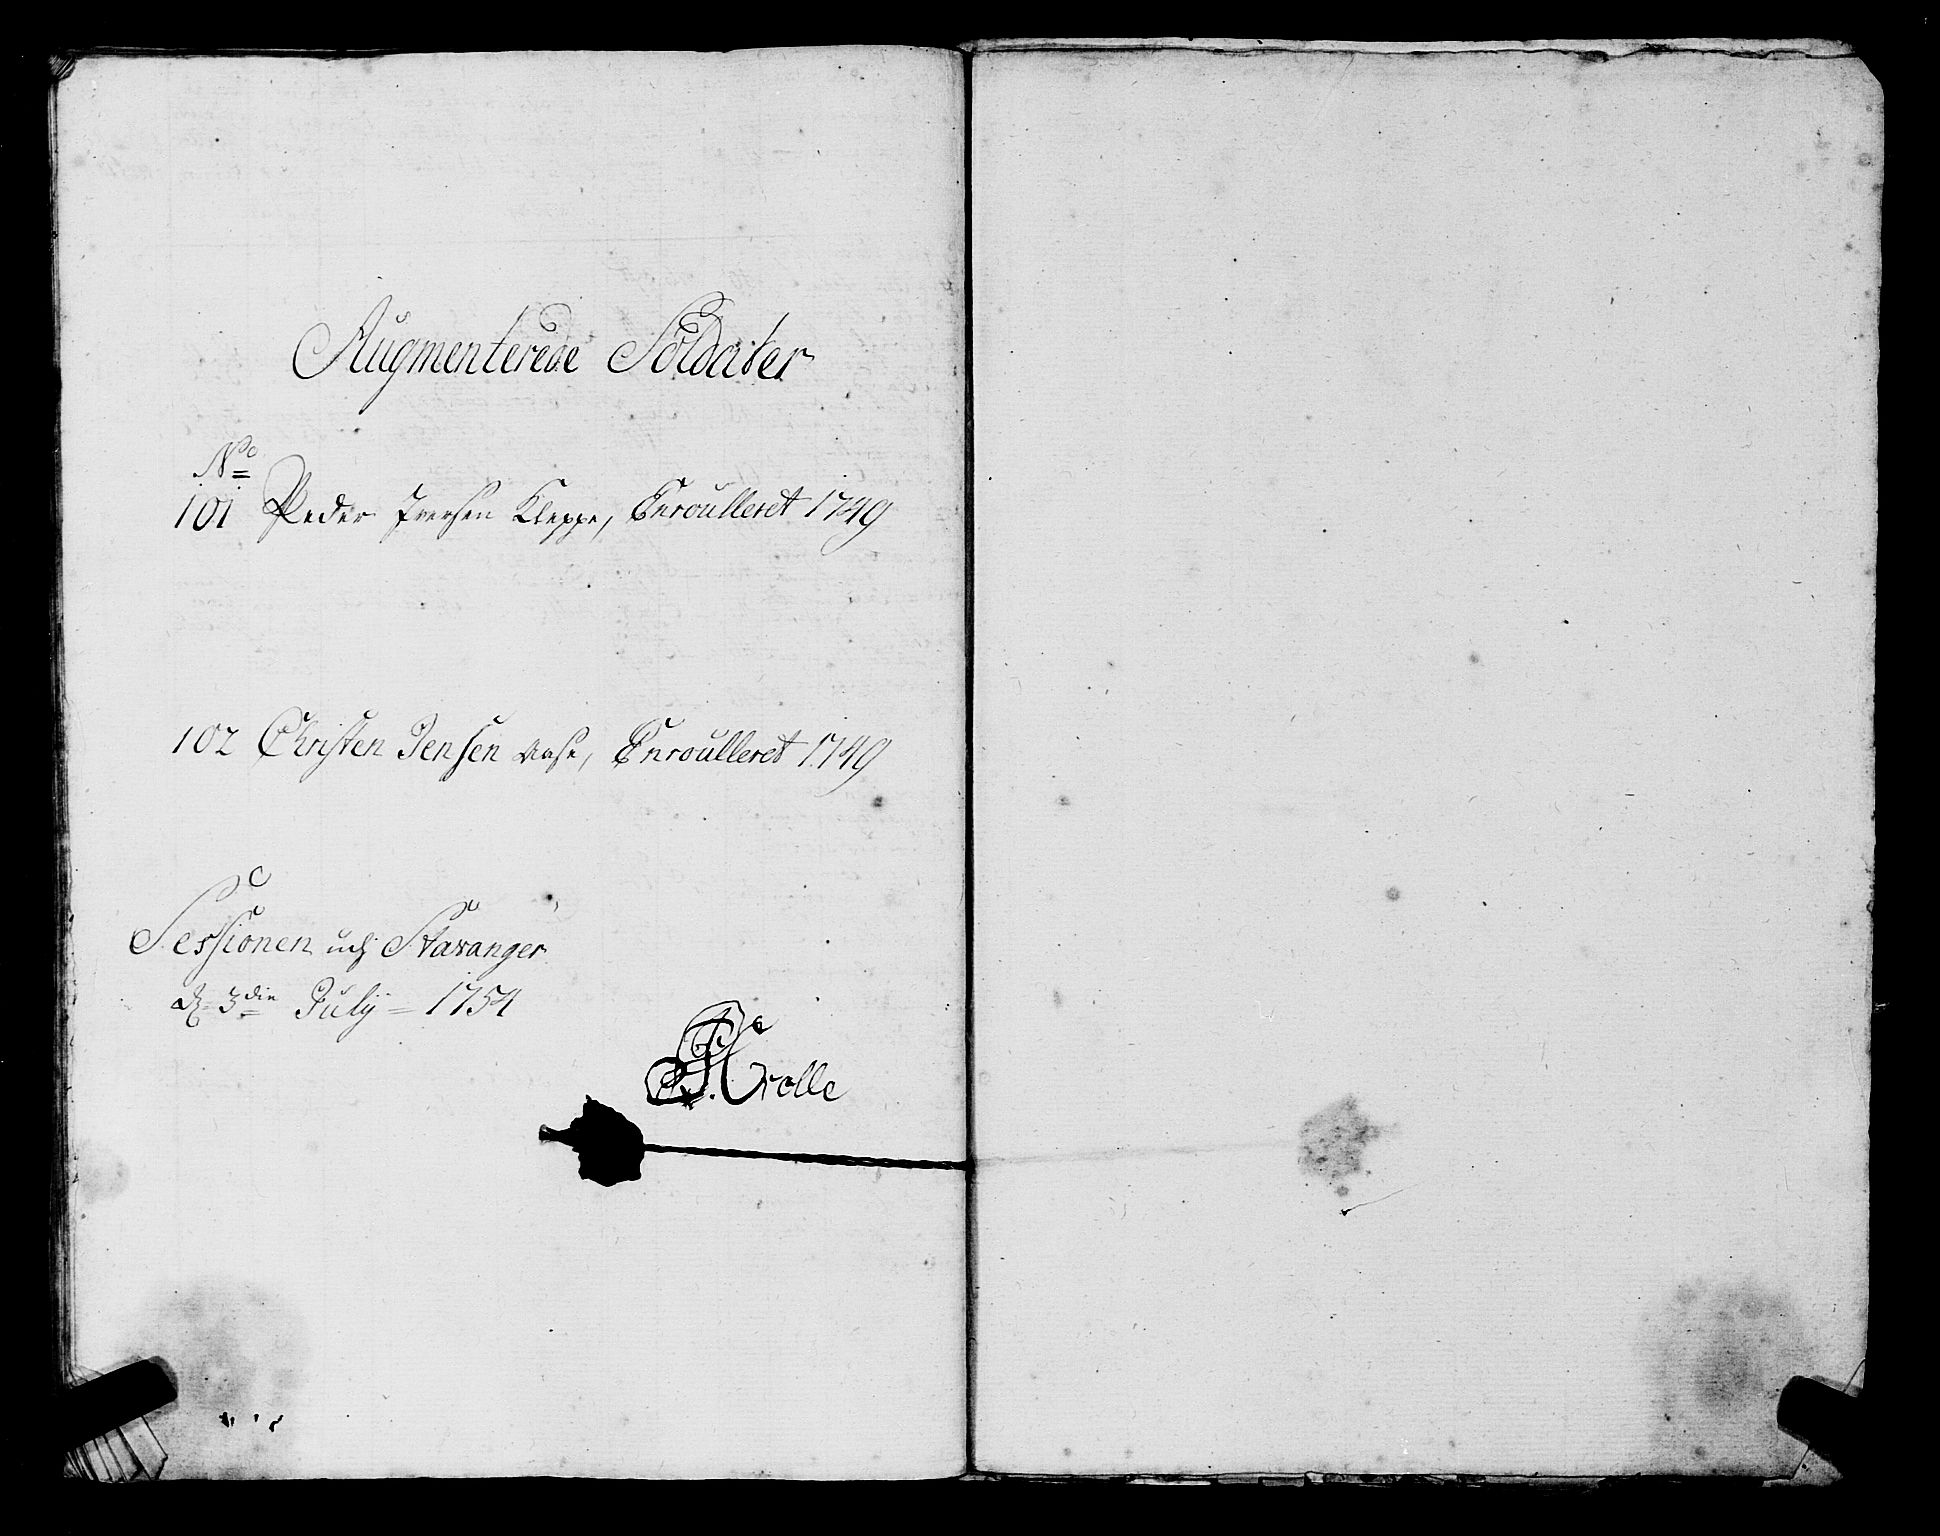 Augmenterede Soldater
No
101 Peder Iversen Kleppe, Enroulleret 1749
102 Christen Jensen Aase, Enroulleret 1749
Sessionen udj Stavanger
d 3die July = 1754
Krolle